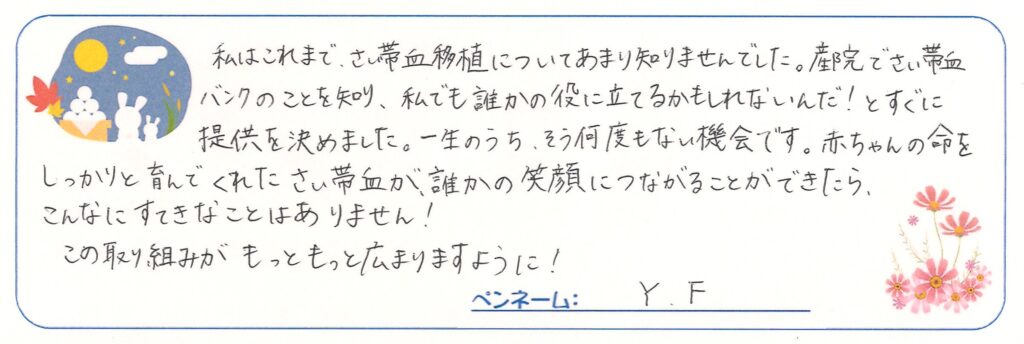 私はこれまで、さい帯血移植についてあまり知りませんでした。産院でさい帯血
バンクのことを知り、私でも誰かの役に立てるかもしれないんだ！とすぐに
提供を決めました。一生のうち、そう何度もない機会です。赤ちゃんの命を
しっかりと育んでくれたさい帯血が、誰かの笑顔につながることができたら、
こんなにすてきなことはありません！
この取り組みがもっともっと広まりますように！
ペンネーム： Y.F